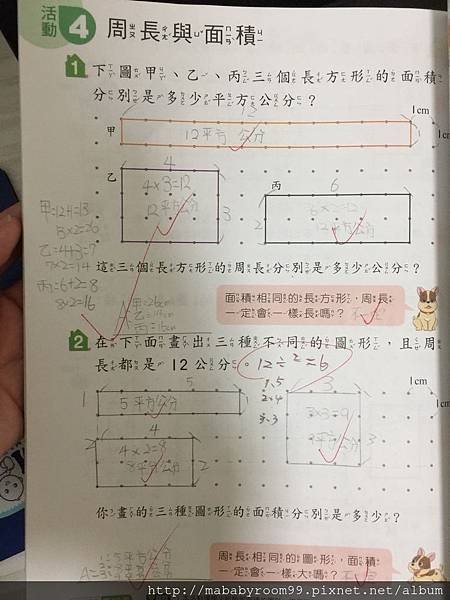 活動4 周長與面積
1 下圖甲、乙、丙三個長方形的面積
分別是多少平方公分?
12
1cm
甲
12平方公分
1
1cm
乙
4
4×3=12
12平方公分
3
丙
6
6×2=12
12平方公分
2
甲=12+1=13
13×2=26
乙=4+3=7
7×2=14
丙=6+2=8
8×2=16
這三個長方形的周長分別是多少公分?
甲=26cm
乙=14cm
丙=16cm
面積相同的長方形,周長
一定會一樣長嗎?不一定
2 在下面畫出三種不同的圖形,且周
長都是12公分。12÷2=6
1、5
2×4
3、3
5
1
5平方公分
1
3
3×3=9
9平方公分
3
1cm
1cm
4
2
4×2=8
8平方公分
2
你畫的三種圖形的面積分別是多少?
周長相同的圖形,面積
一定會一樣大嗎?
http://mababyroom99.pixnet.net/album